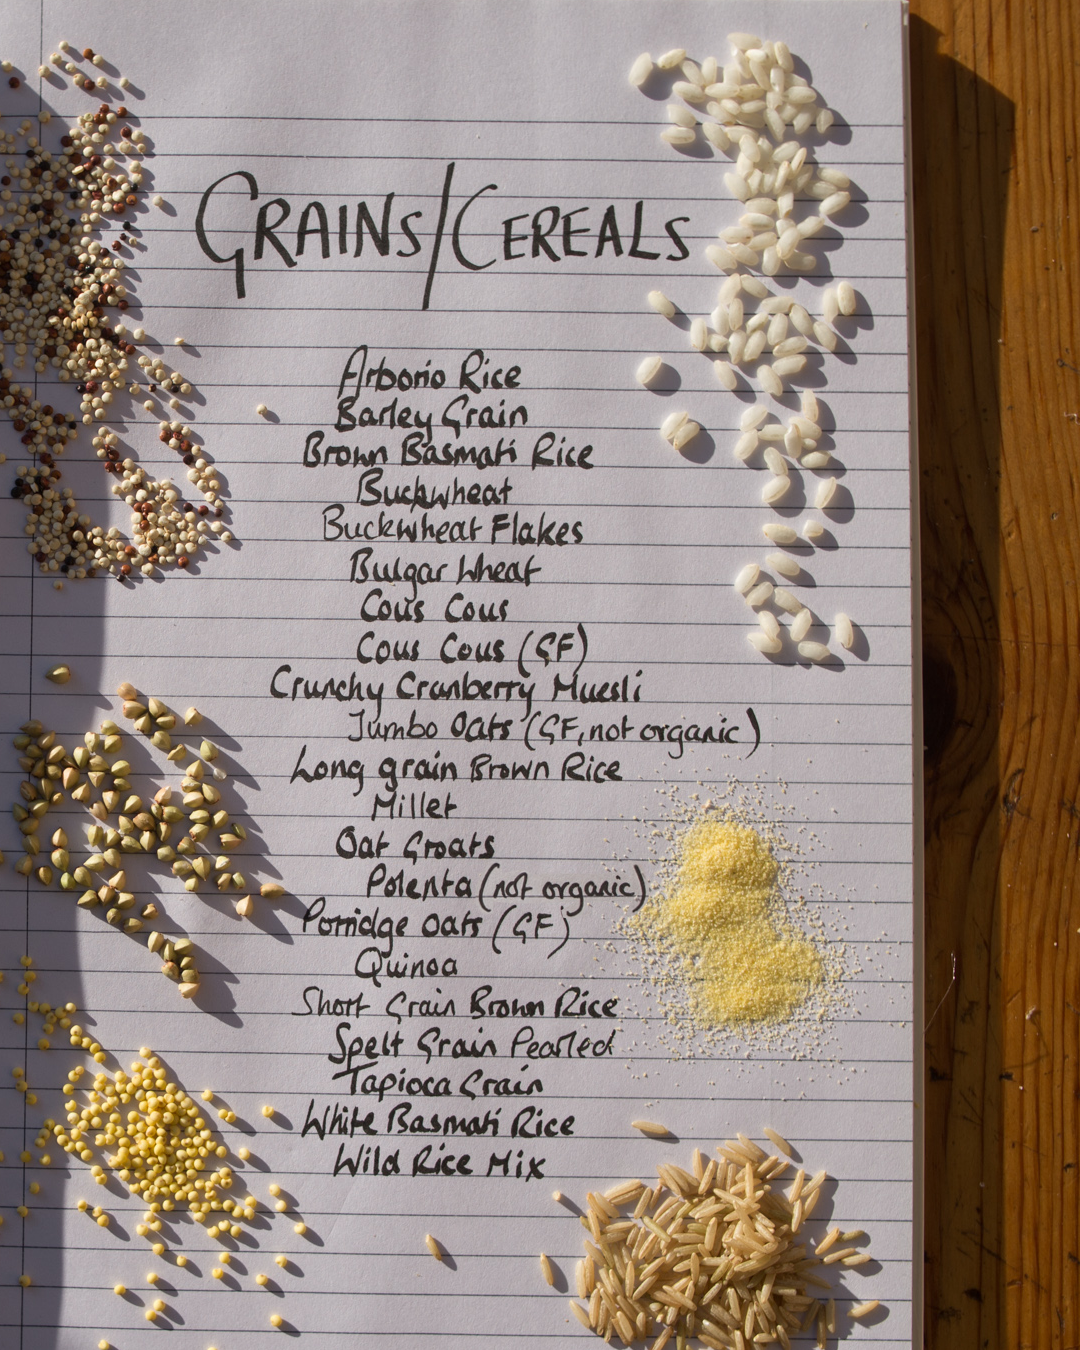 GRAINS/CEREALS
Arborio Rice
Barley Grain
Brown Basmati Rice
Buckwheat
Buckwheat Flakes
Bulgar Wheat
Cous Cous
Cous Cous (GF)
Crunchy Cranberry Muesli
Jumbo Oats (GF, not organic)
Long grain Brown Rice
Millet
Oat Groats
Polenta (not organic)
Porridge Oats (GF)
Quinoa
Short Grain Brown Rice
Spelt Grain Pearled
Tapioca Grain
White Basmati Rice
Wild Rice Mix